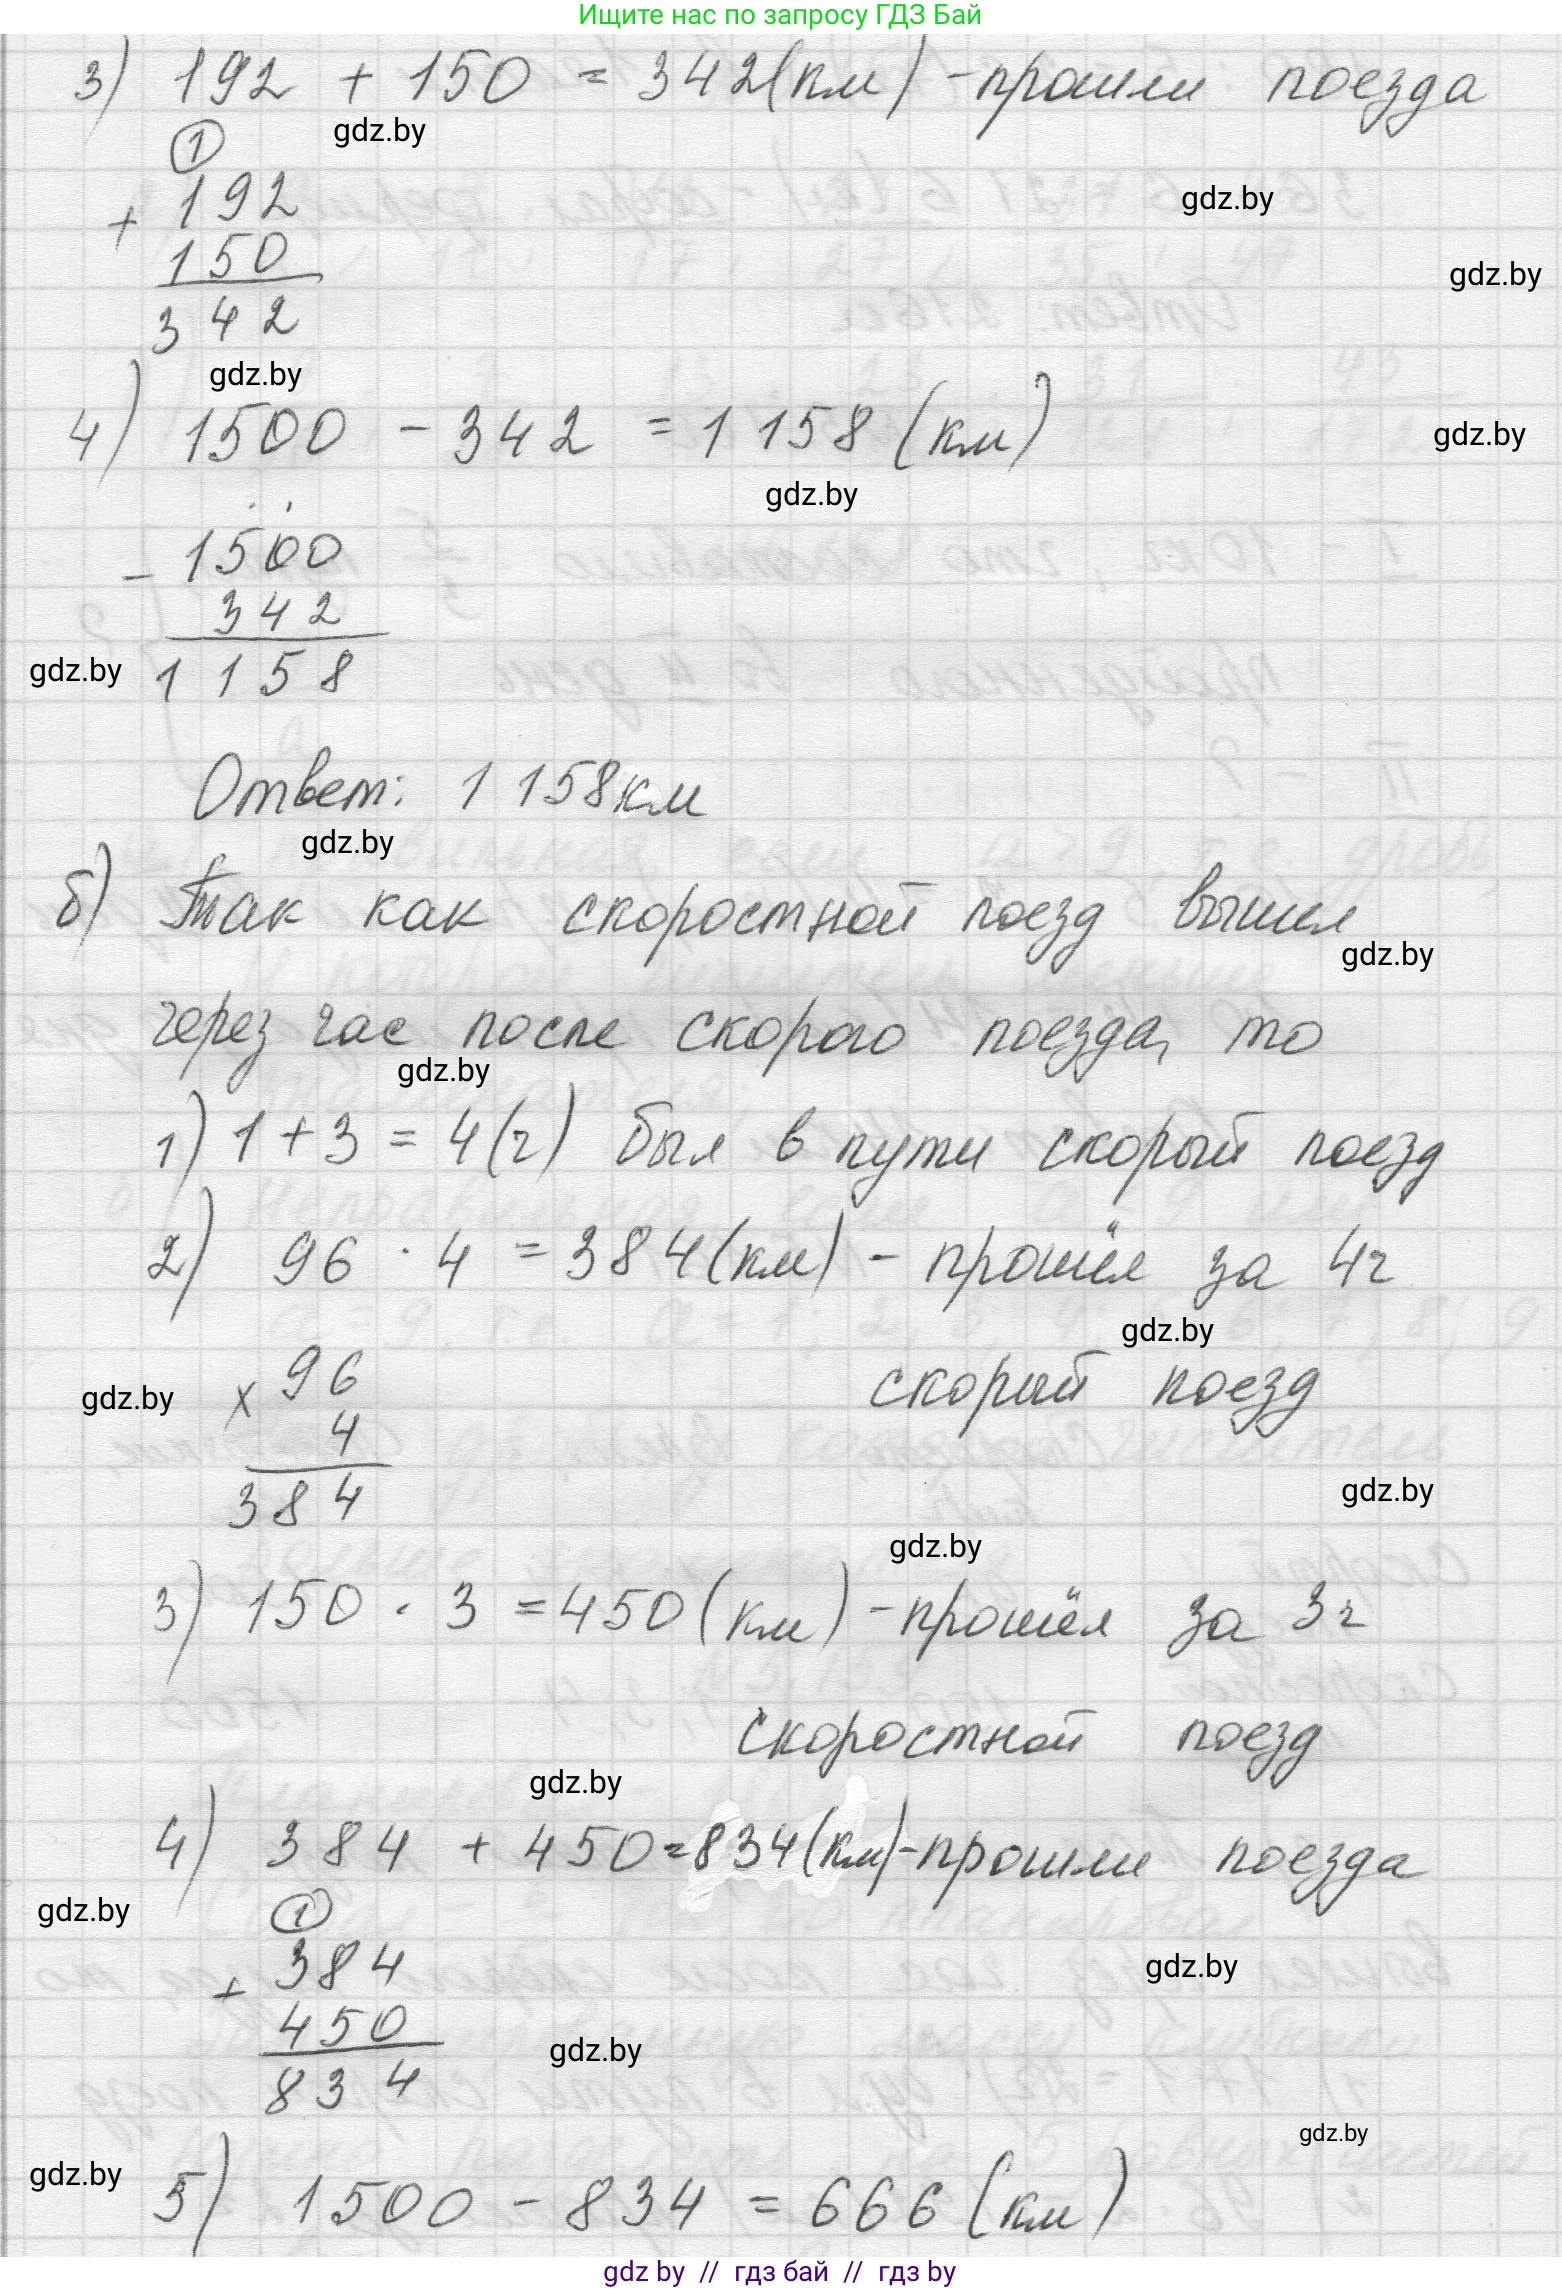 Ищите нас по запросу ГДЗ Бай
3) 192 + 150 = 342(км) - прошли поезда
gdz.by
1
gdz.by
+ 192
150
gdz.by
342
gdz.by
4) 1500 - 342 = 1 158 (км)
gdz.by
gdz.by
- 1500
342
gdz.by
1 158
Ответ: 1 158км
gdz.by
б) Так как скоростной поезд вышел
gdz.by
через час после скорого поезда, то
gdz.by
1) 1 + 3 = 4(ч) был в пути скорый поезд
2) 96 · 4 = 384(км) - прошёл за 4ч
gdz.by
скорый поезд
gdz.by
x 96
4
384
gdz.by
gdz.by
3) 150 · 3 = 450(км) - прошёл за 3ч
скоростной поезд
gdz.by
4) 384 + 450 = 834(км) - прошли поезда
gdz.by
1
gdz.by
+ 384
450
gdz.by
834
gdz.by
gdz.by
5) 1500 - 834 = 666 (км)
gdz by // гдз бай // гдз by